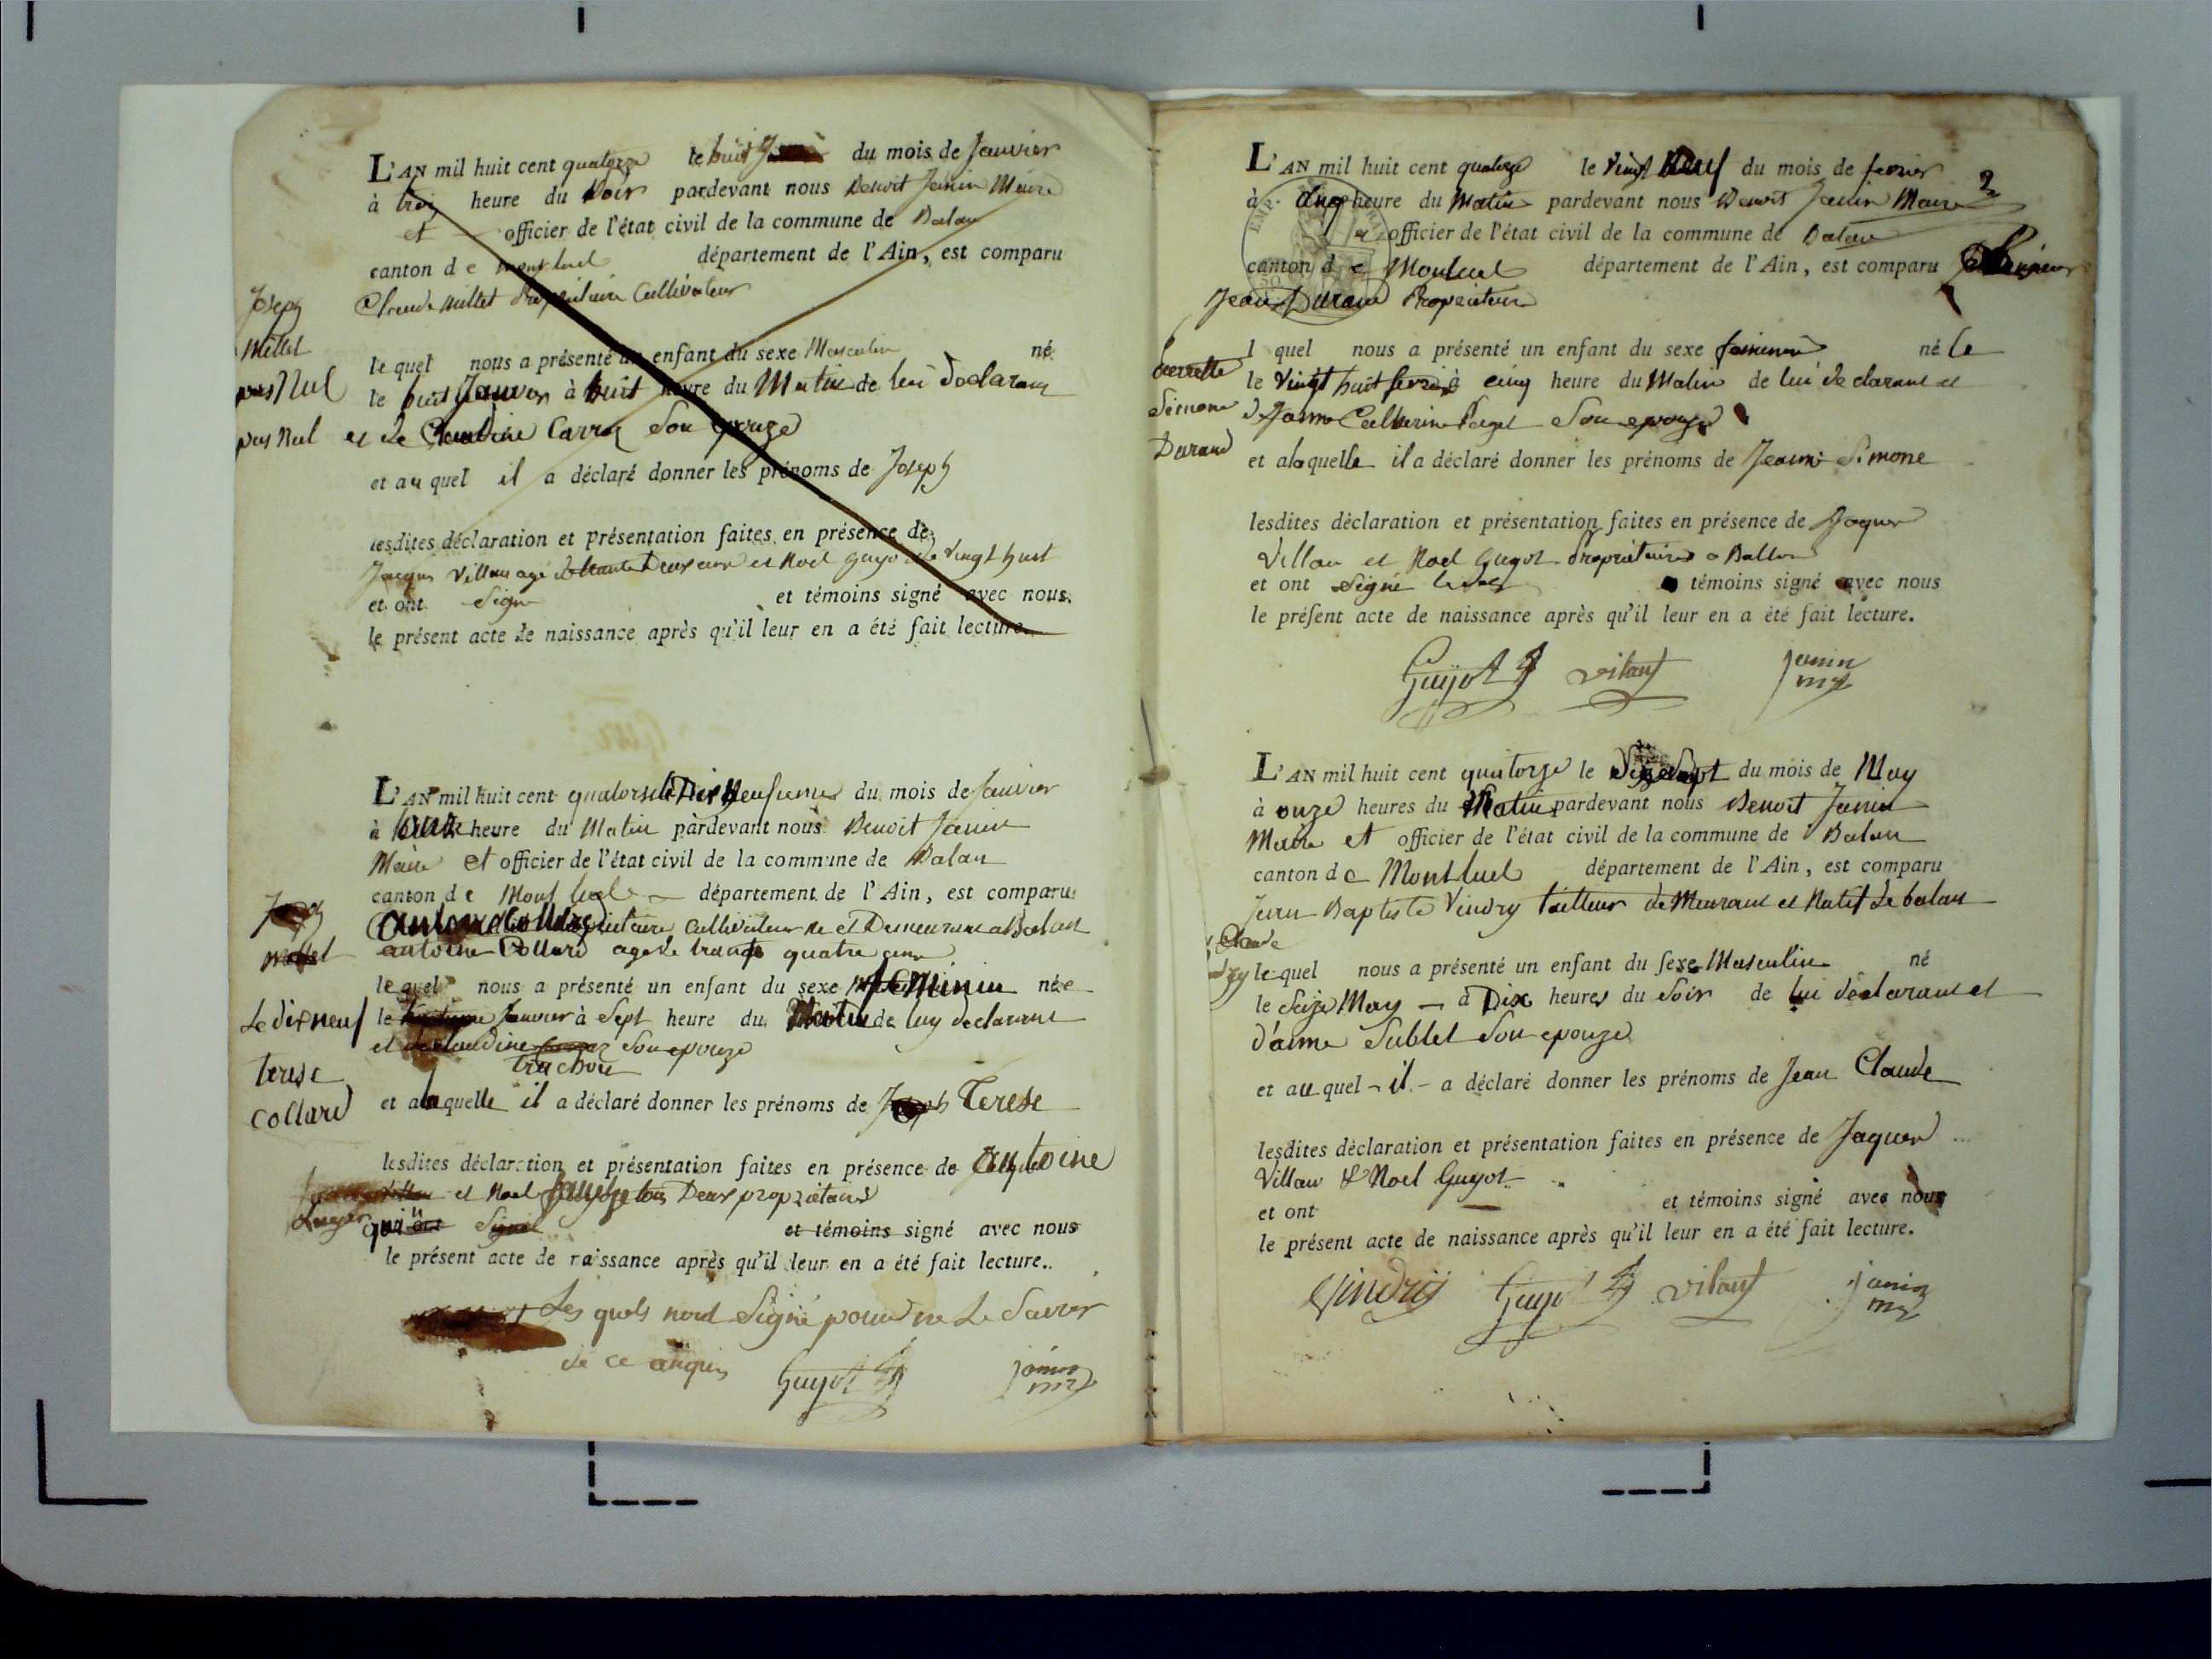 L'AN mil huit cent quatorze le huit du mois de Janvier
à trois heure du Soir pardevant nous Benoit Janin Maire
et officier de l'état civil de la commune de Balan
canton de montluel département de l'Ain, est comparu
Claude Millet Propriétaire Cultivateur
Joseph
Millet
pas Nul
pas Nul
le quel nous a présenté un enfant du sexe Masculin né
le huit Janvier à huit heure du Matin de lui declarant
et de Claudine Carroz Son epouze
et au quel il a déclaré donner les prénoms de Joseph
lesdites déclaration et présentation faites en présence de
Jaques Villau agé Deux ans et Noel Guyot de Vingt huit
et ont Signé et témoins signé avec nous.
le présent acte de naissance après qu'il leur en a été fait lecture.
L'AN mil huit cent quatorse le Dix Neufieme du mois de Janvier
à onze heure du Matin pardevant nous Benoit Janin
Maire et officier de l'état civil de la commune de Balan
canton de Mont luel département de l'Ain, est comparu
Cultivateur ne et Demeurant a Balan
antoine Collard age de trante quatre ans
le quel nous a présenté un enfant du sexe feMinin née
Le dix neuf le Janvier à Sept heure du Matin de luy declarant
et de claudine Son epouze
truchon
terese
Collard
et a laquelle il a déclaré donner les prénoms de Terese
lesdites déclaration et présentation faites en présence de antoine
et Noel tous Deux propriétaires
qui n'ont Signé et témoins signé avec nous
le présent acte de naissance après qu'il leur en a été fait lecture..
Les quels nont Signé pour ne Le Savoir
de ce enquis Guyot Janin
L'AN mil huit cent quatorze le Vingt Neuf du mois de fevrier
à cinq heure du Matin pardevant nous Benoit Janin Maire
officier de l'état civil de la commune de Balan
canton de Montluel département de l'Ain, est comparu
Jean Durand Propriétaire
Simone
Durand
l quel nous a présenté un enfant du sexe feminin né le
le Vingt huit fevrier à cinq heure du Matin de lui declarant et
Catherine Son epouze
et a laquelle il a déclaré donner les prénoms de Jeanne Simone
lesdites déclaration et présentation faites en présence de Jaques
Villau et Noel Guyot Propriétaires a Ballan
et ont Signé témoins signé avec nous
le présent acte de naissance après qu'il leur en a été fait lecture.
Guyot vilaud Janin
L'AN mil huit cent quatorze le Dix Sept du mois de May
à onze heures du Matin pardevant nous Benoit Janin
Maire et officier de l'état civil de la commune de Balan
canton de Montluel département de l'Ain, est comparu
Jean Baptiste Vindry tailleur deMeurant et Natif de balan
Claude
le quel nous a présenté un enfant du sexe Masculin né
le Seize May à Dix heures du Soir de lui déclarant et
d'aime Sublet Son epouze
et au quel il a déclaré donner les prénoms de Jean Claude
lesdites déclaration et présentation faites en présence de Jaques
Villau & Noel Guyot
et ont et témoins signé avec nous
le présent acte de naissance après qu'il leur en a été fait lecture.
Vindry Guyot vilaud Janin